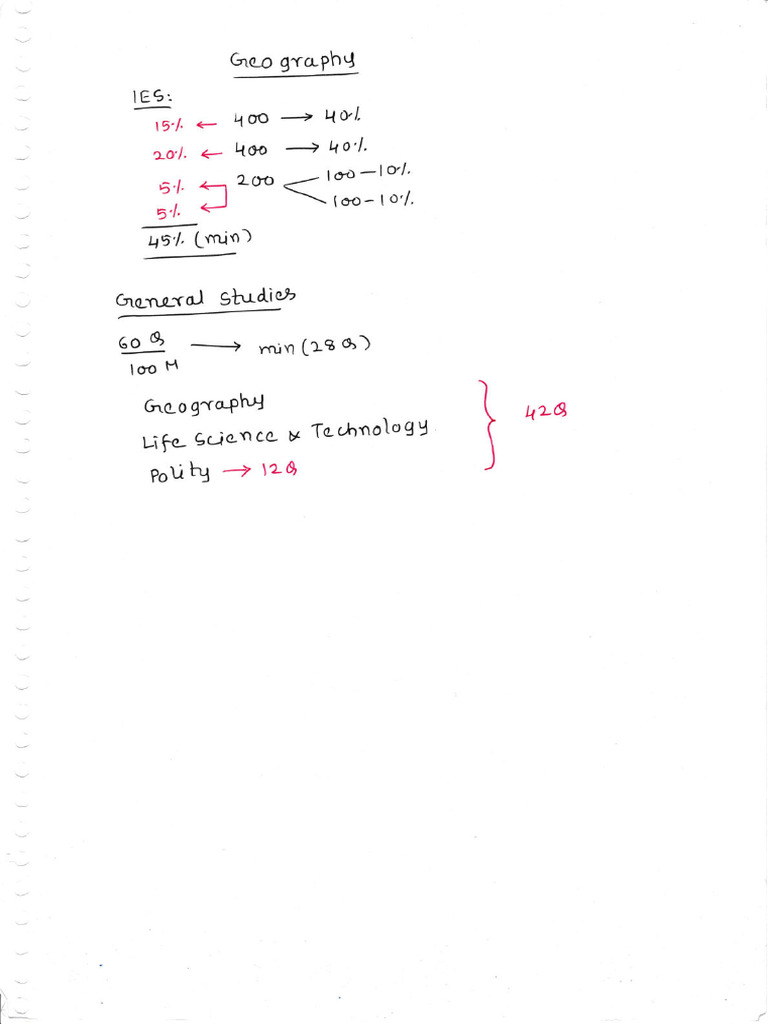 Geography
IES:
15% ← 400 → 40%
20% ← 400 → 40%
5% ← 200 100-10%
5% ← 100-10%
45% (min)
General Studies
60 Q → min (28 Q)
100 M
Geography
Life Science & Technology } 42Q
Polity → 12Q